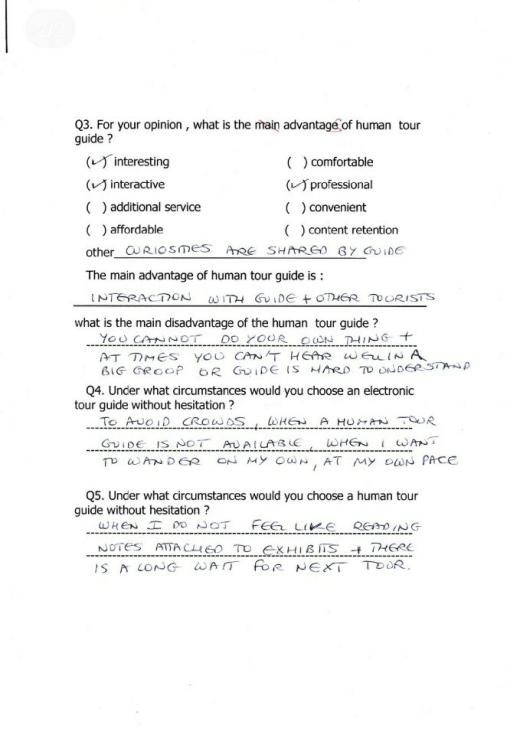 Q3. For your opinion , what is the main advantage of human tour
guide ?
(✓) interesting ( ) comfortable
(✓) interactive (✓) professional
( ) additional service ( ) convenient
( ) affordable ( ) content retention
other CURIOSITIES ARE SHARED BY GUIDE
The main advantage of human tour guide is :
INTERACTION WITH GUIDE + OTHER TOURISTS
what is the main disadvantage of the human tour guide ?
YOU CANNOT DO YOUR OWN THING +
AT TIMES YOU CAN'T HEAR WELL IN A
BIG GROOP OR GUIDE IS HARD TO UNDERSTAND
Q4. Under what circumstances would you choose an electronic
tour guide without hesitation ?
TO AVOID CROWDS, WHEN A HUMAN TOUR
GUIDE IS NOT AVAILABLE, WHEN I WANT
TO WANDER ON MY OWN, AT MY OWN PACE
Q5. Under what circumstances would you choose a human tour
guide without hesitation ?
WHEN I DO NOT FEEL LIKE READING
NOTES ATTACHED TO EXHIBITS + THERE
IS A LONG WAIT FOR NEXT TOUR.